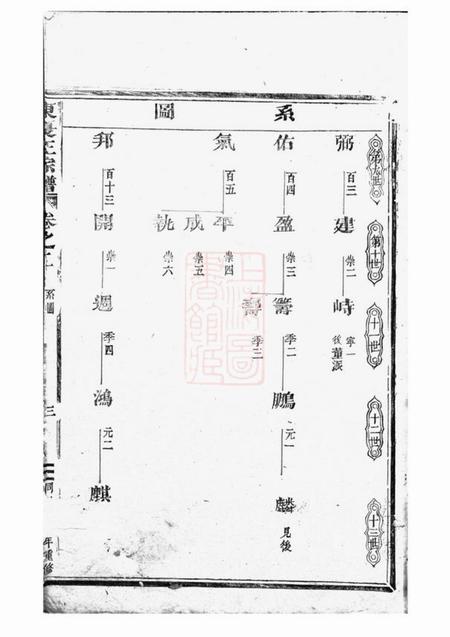 系圖
第九世
第十世
十一世
十二世
十三世
弼 百三 建 崇二 峙 寧一 後董派
佑 百四 盈 崇三 籌 季二 鵬 元一 麟 見後
壽 季三
氣 百五 平 崇四
成 崇五
祧 崇六
邦 百十三 開 崇一 週 季四 鴻 元二 麒
宗譜 卷之
系圖
三
年重修